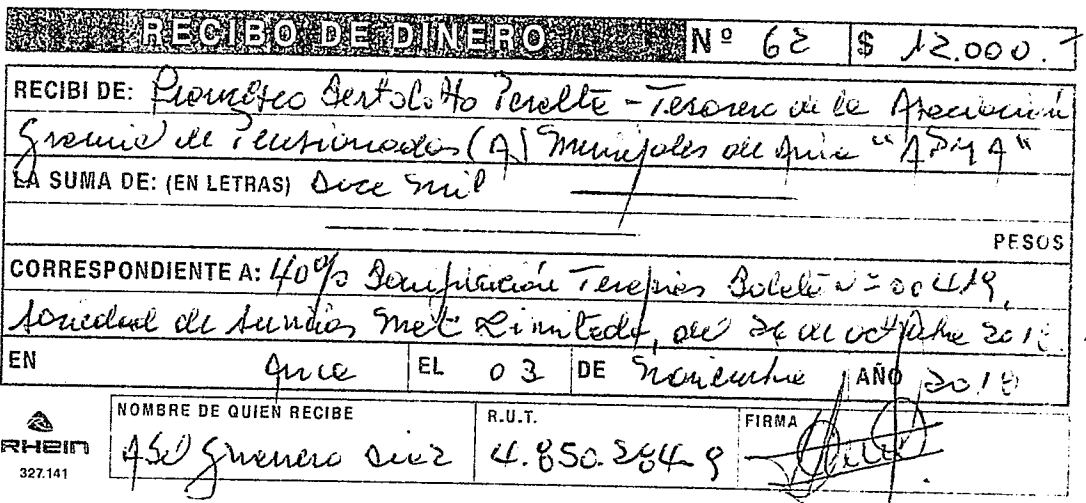 RECIBO DE DINERO Nº 62 $ 12.000.-
RECIBI DE: Bertolotto Peralta - Tesorero de la Asociación
Gremial de Pensionados (A) Municipales de Arica "APMA"
LA SUMA DE: (EN LETRAS) Doce mil
PESOS
CORRESPONDIENTE A: 40% Bonificación Terapias Boleta Nº 00419,
Sociedad de Servicios Met Limitada, del 26 de octubre 2018.
EN Arica EL 03 DE Noviembre AÑO 2018
NOMBRE DE QUIEN RECIBE R.U.T. FIRMA
Guerrero Diaz 4.850.264-9
RHEIN
327.141